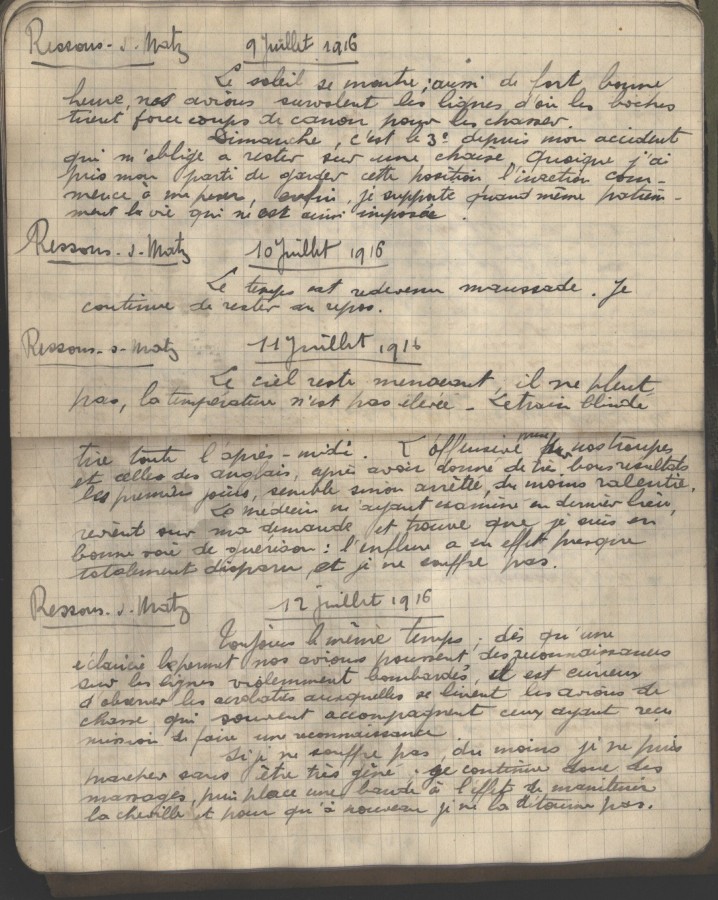 Ressons-s-Matz 9 Juillet 1916
Le soleil se montre ; aussi de fort bonne
heure, nos avions survolent les lignes d'où les boches
tirent force coups de canon pour les chasser.
Dimanche, c'est le 3e depuis mon accident
qui m'oblige a rester sur une chaise. Quoique j'ai
pris mon parti de garder cette position l'inaction com-
mence à me peser, enfin, je supporte quand même patiem-
ment la vie qui m'est ainsi imposée.
Ressons-s-Matz 10 Juillet 1916
Le temps est redevenu maussade. Je
continue de rester au repos.
Ressons-s-Matz 11 Juillet 1916
Le ciel reste menaçant, il ne pleut
pas, la température n'est pas élevée - Le train blindé
tire toute l'après-midi. L'offensive nos troupes
et celles des anglais, après avoir donné de très bons résultats
les premiers jours, semble sinon arrêtée, du moins ralentie.
Le médecin m'ayant examiné en dernier lieu,
revient sur ma demande et trouve que je suis en
bonne voie de guérison : l'enflure a en effet presque
totalement disparu, et je ne souffre pas.
Ressons-s-Matz 12 juillet 1916
Toujours le même temps ; dès qu'une
éclaircie le permet nos avions poussent des reconnaissances
sur les lignes violemment bombardés, et est curieux
d'observer les acrobaties auxquelles se livrent les avions de
chasse qui souvent accompagnent ceux ayant reçu
mission de faire une reconnaissance
Si je ne souffre pas, du moins je ne puis
marcher sans être très gêné ; je continue donc des
massages, puis place une bande à l'effet de maintenir
la cheville et pour qu'à nouveau je ne la détourne pas.